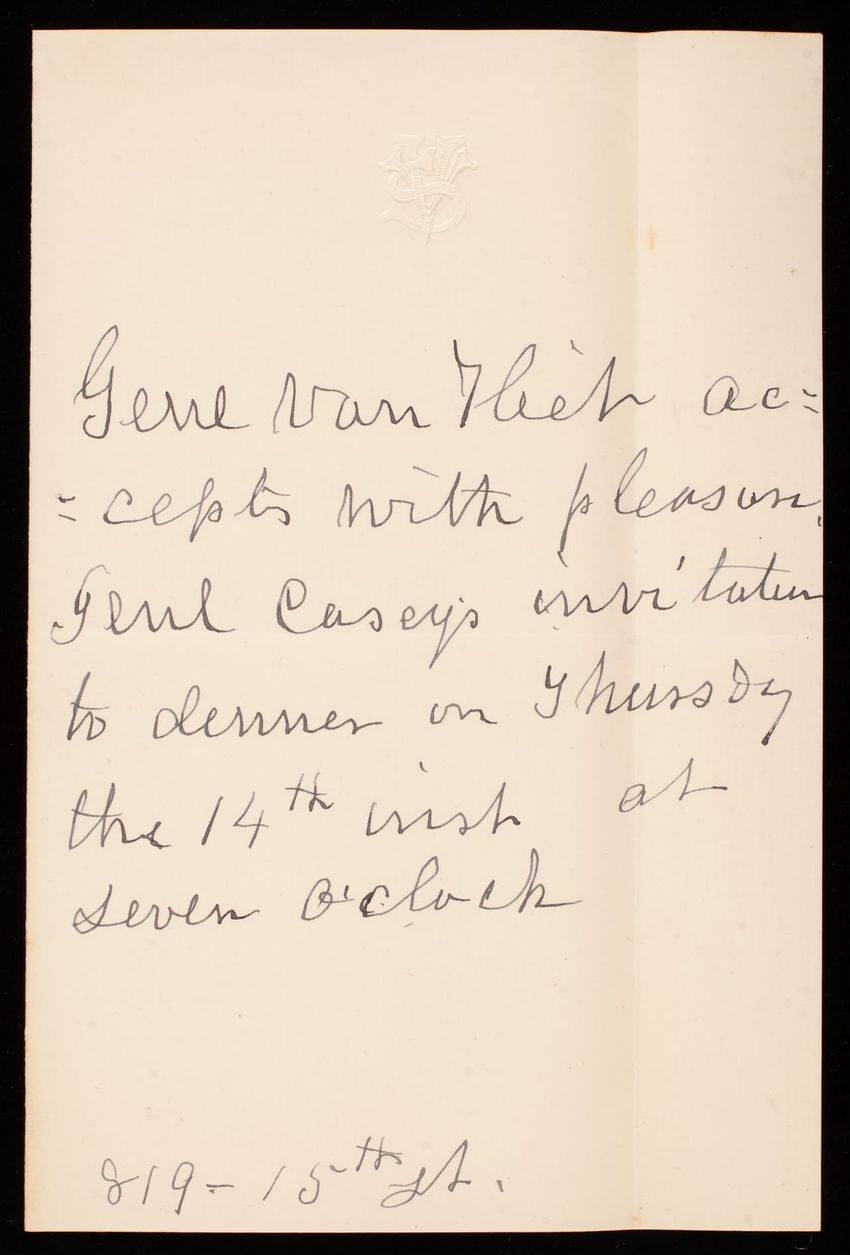 Genl Van Vliet ac=
=cepts with pleasure
Genl Casey's invitation
to dinner on Thursday
the 14th inst at
seven o'clock
819 - 15th st.